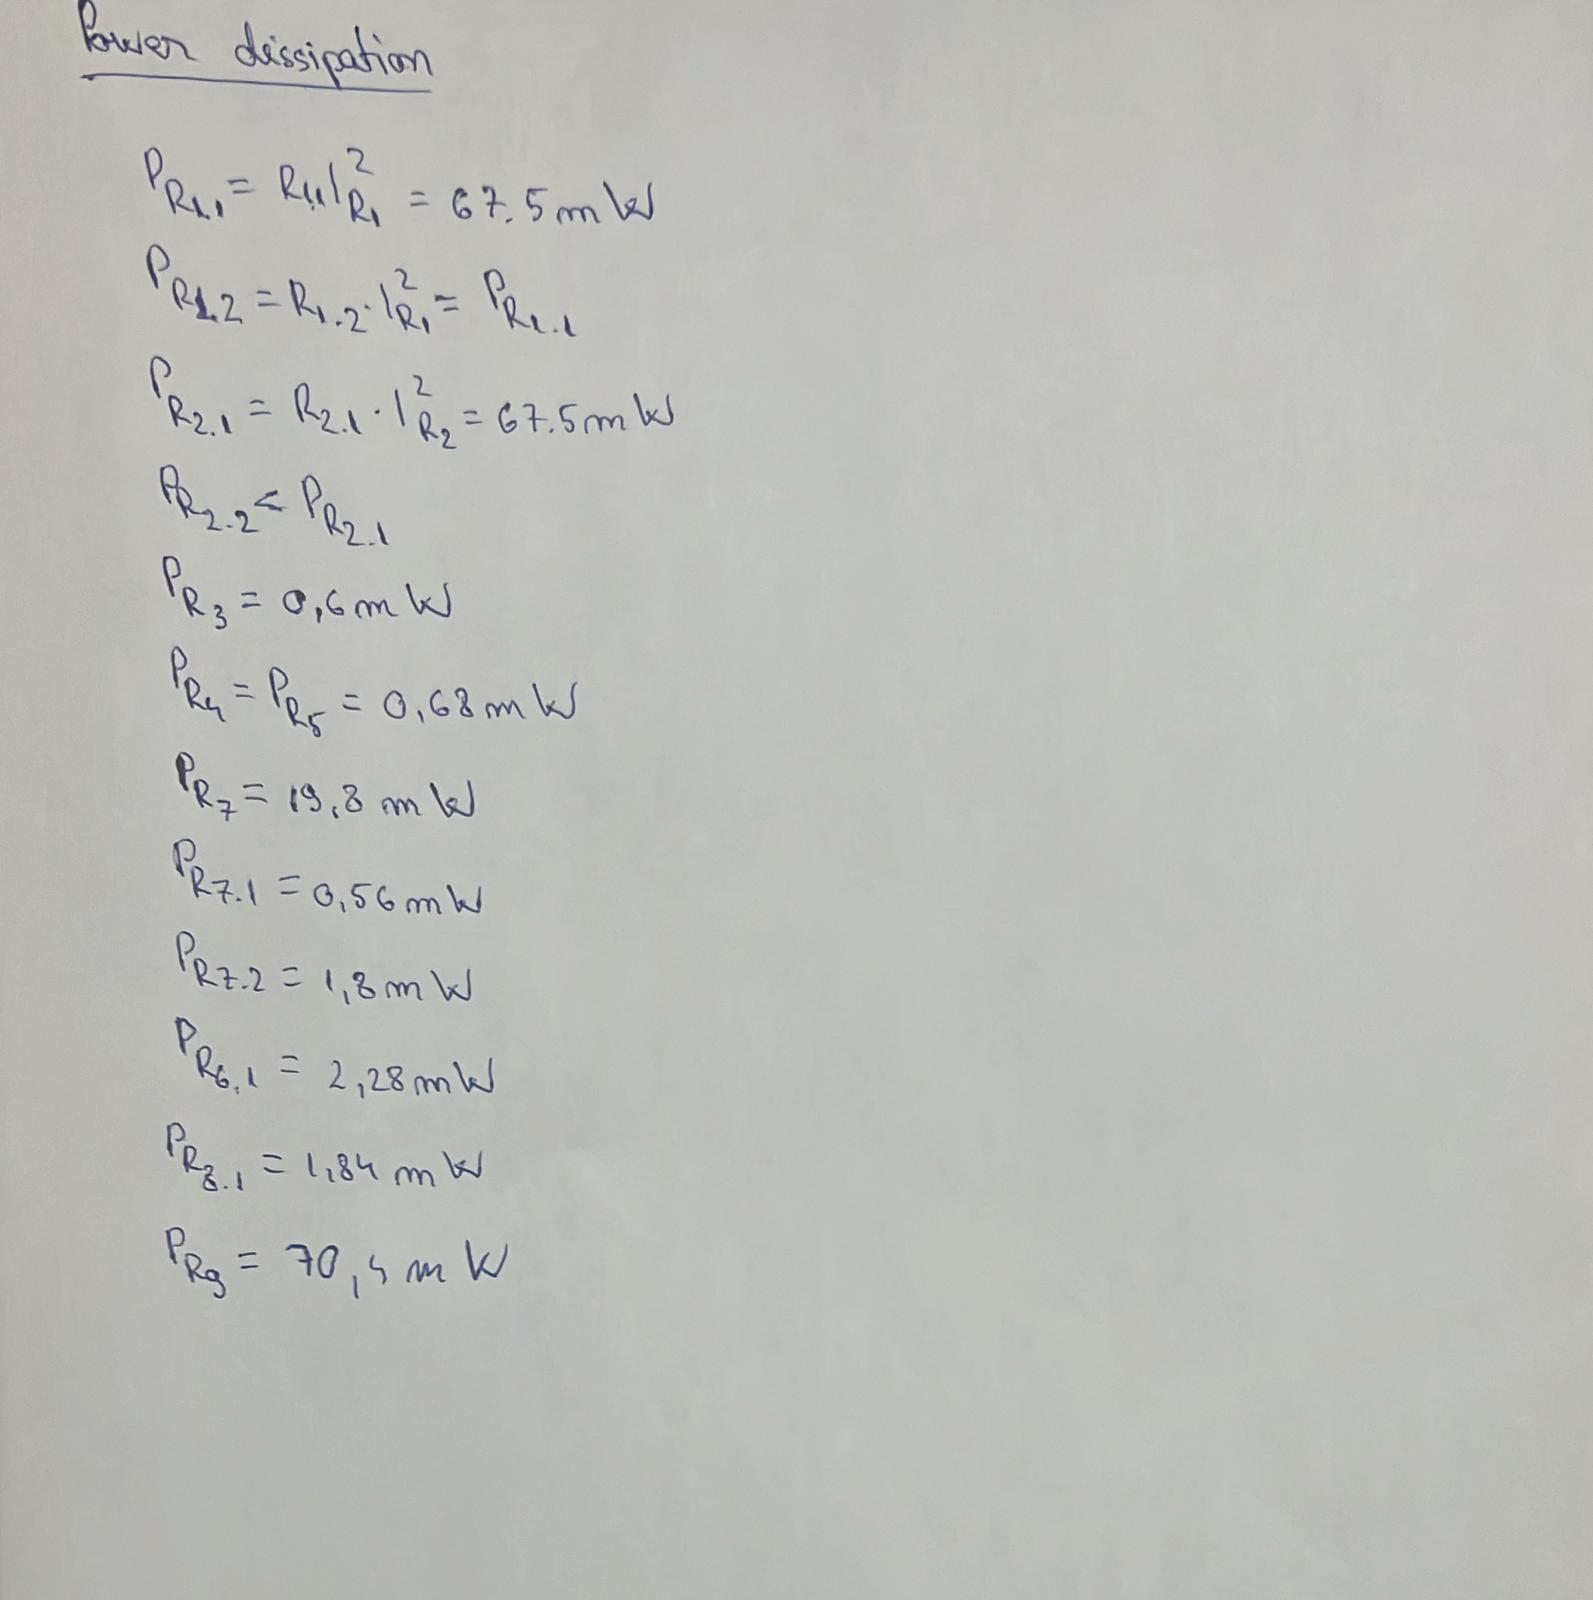 Power dissipation
P_R1.1 = R1.1 I²_R1 = 67.5 mW
P_R1.2 = R1.2 · I²_R1 = P_R1.1
P_R2.1 = R2.1 · I²_R2 = 67.5 mW
P_R2.2 < P_R2.1
P_R3 = 0,6 mW
P_R4 = P_R5 = 0,68 mW
P_R7 = 19,8 mW
P_R7.1 = 0,56 mW
P_R7.2 = 1,8 mW
P_R6.1 = 2,28 mW
P_R8.1 = 1,84 mW
P_R9 = 70,4 mW